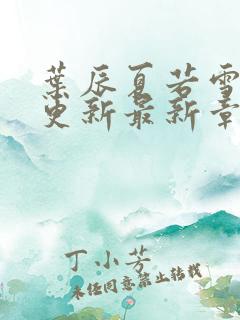 葉辰夏若雪
更新最新章
丁小芳
未经同意禁止转载